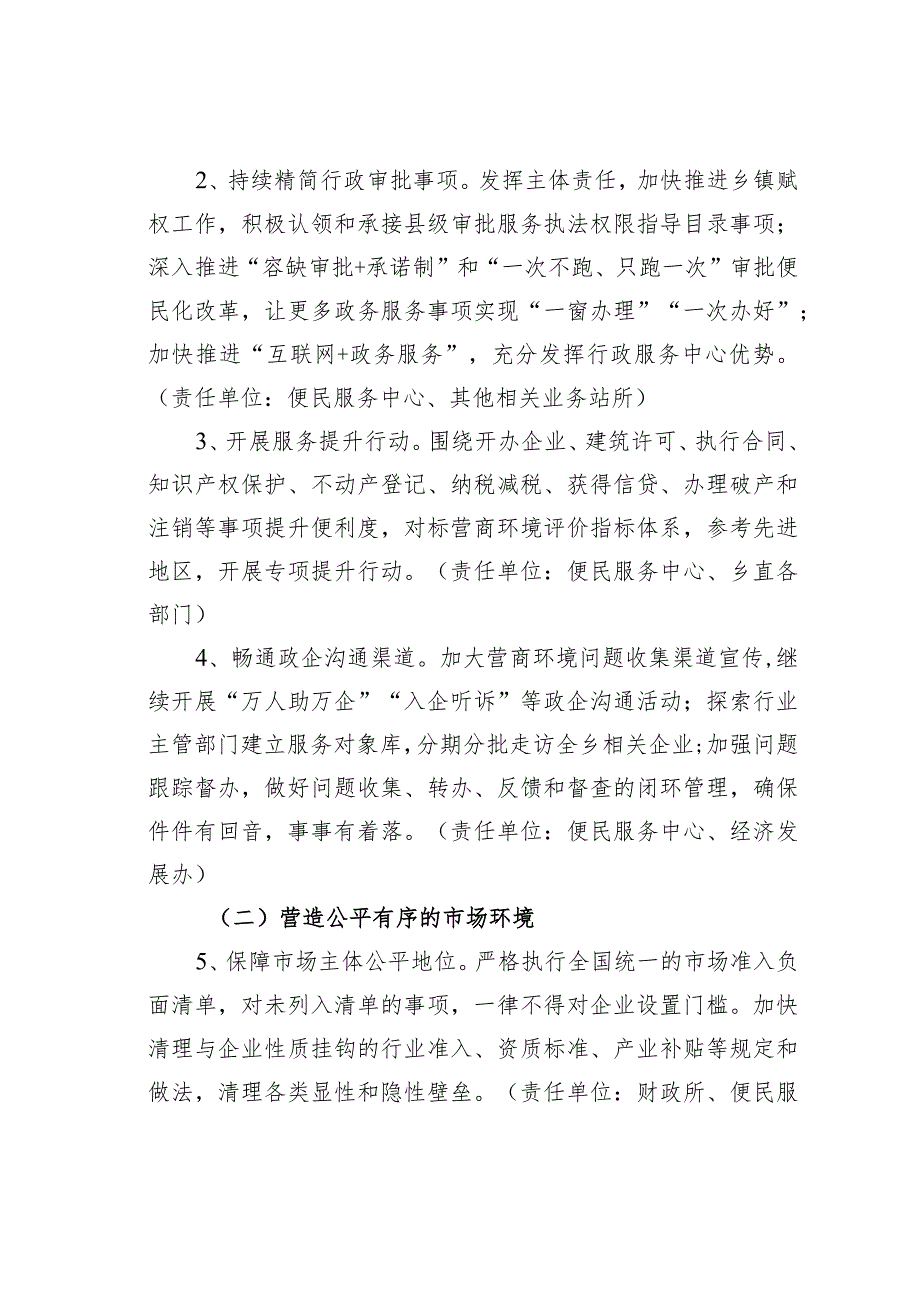 2、持续精简行政审批事项。发挥主体责任，加快推进乡镇赋
权工作，积极认领和承接县级审批服务执法权限指导目录事项；
深入推进“容缺审批+承诺制”和“一次不跑、只跑一次”审批便
民化改革，让更多政务服务事项实现“一窗办理”“一次办好”；
加快推进“互联网+政务服务”，充分发挥行政服务中心优势。
（责任单位：便民服务中心、其他相关业务站所）
3、开展服务提升行动。围绕开办企业、建筑许可、执行合同、
知识产权保护、不动产登记、纳税减税、获得信贷、办理破产和
注销等事项提升便利度，对标营商环境评价指标体系，参考先进
地区，开展专项提升行动。（责任单位：便民服务中心、乡直各
部门）
4、畅通政企沟通渠道。加大营商环境问题收集渠道宣传,继
续开展“万人助万企”“入企听诉”等政企沟通活动；探索行业
主管部门建立服务对象库,分期分批走访全乡相关企业;加强问题
跟踪督办，做好问题收集、转办、反馈和督查的闭环管理，确保
件件有回音，事事有着落。（责任单位：便民服务中心、经济发
展办）
（二）营造公平有序的市场环境
5、保障市场主体公平地位。严格执行全国统一的市场准入负
面清单，对未列入清单的事项，一律不得对企业设置门槛。加快
清理与企业性质挂钩的行业准入、资质标准、产业补贴等规定和
做法，清理各类显性和隐性壁垒。（责任单位：财政所、便民服